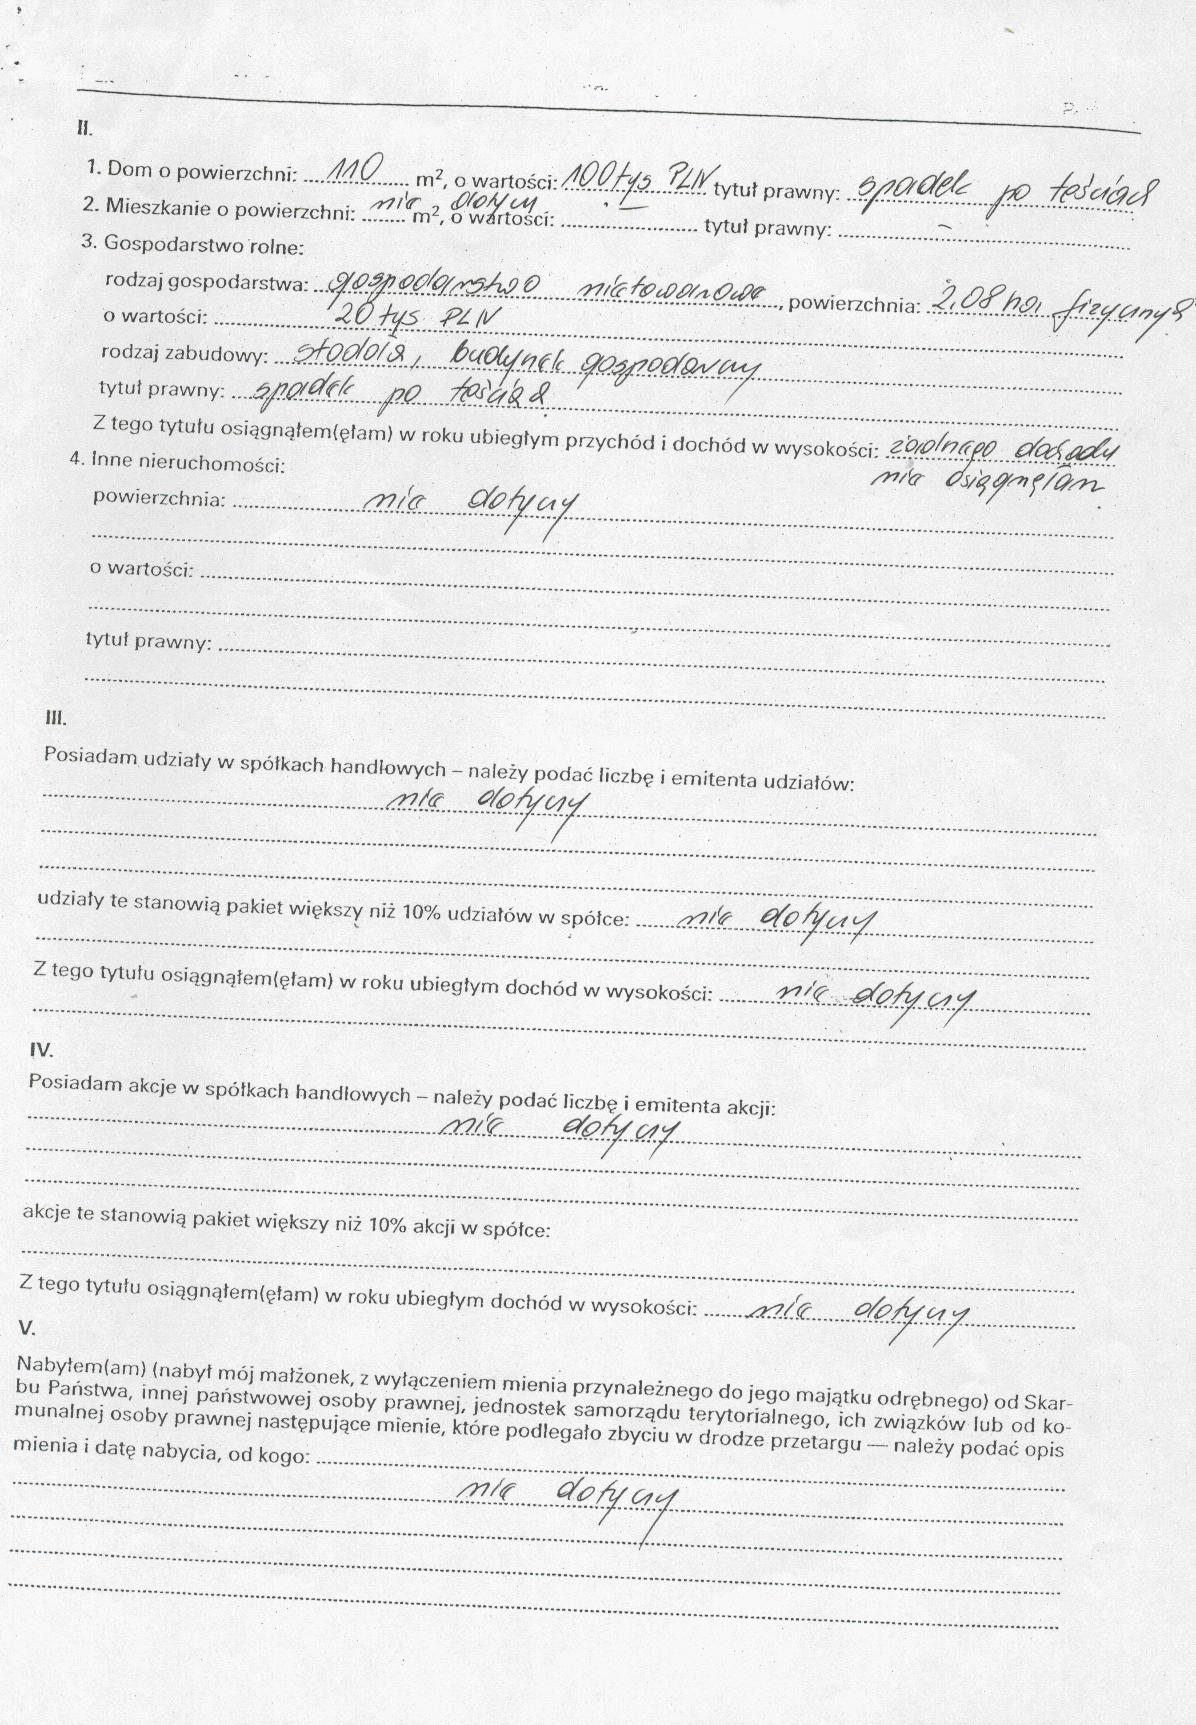 II.
1. Dom o powierzchni: 110 m², o wartości: 100 tys PLN tytuł prawny: spadek po teściach
2. Mieszkanie o powierzchni: nie dotyczy m², o wartości: tytuł prawny: –
3. Gospodarstwo rolne:
rodzaj gospodarstwa: gospodarstwo nietowarowe, powierzchnia: 2,08 ha fizycznych
o wartości: 20 tys PLN
rodzaj zabudowy: stodoła, budynek gospodarczy
tytuł prawny: spadek po teściach
Z tego tytułu osiągnąłem(ęłam) w roku ubiegłym przychód i dochód w wysokości: żadnego dochodu
nie osiągnęłam
4. Inne nieruchomości:
powierzchnia: nie dotyczy
o wartości:
tytuł prawny:
III.
Posiadam udziały w spółkach handlowych – należy podać liczbę i emitenta udziałów:
nie dotyczy
udziały te stanowią pakiet większy niż 10% udziałów w spółce: nie dotyczy
Z tego tytułu osiągnąłem(ęłam) w roku ubiegłym dochód w wysokości: nie dotyczy
IV.
Posiadam akcje w spółkach handlowych – należy podać liczbę i emitenta akcji:
nie dotyczy
akcje te stanowią pakiet większy niż 10% akcji w spółce:
Z tego tytułu osiągnąłem(ęłam) w roku ubiegłym dochód w wysokości: nie dotyczy
V.
Nabyłem(am) (nabył mój małżonek, z wyłączeniem mienia przynależnego do jego majątku odrębnego) od Skar-
bu Państwa, innej państwowej osoby prawnej, jednostek samorządu terytorialnego, ich związków lub od ko-
munalnej osoby prawnej następujące mienie, które podlegało zbyciu w drodze przetargu — należy podać opis
mienia i datę nabycia, od kogo:
nie dotyczy